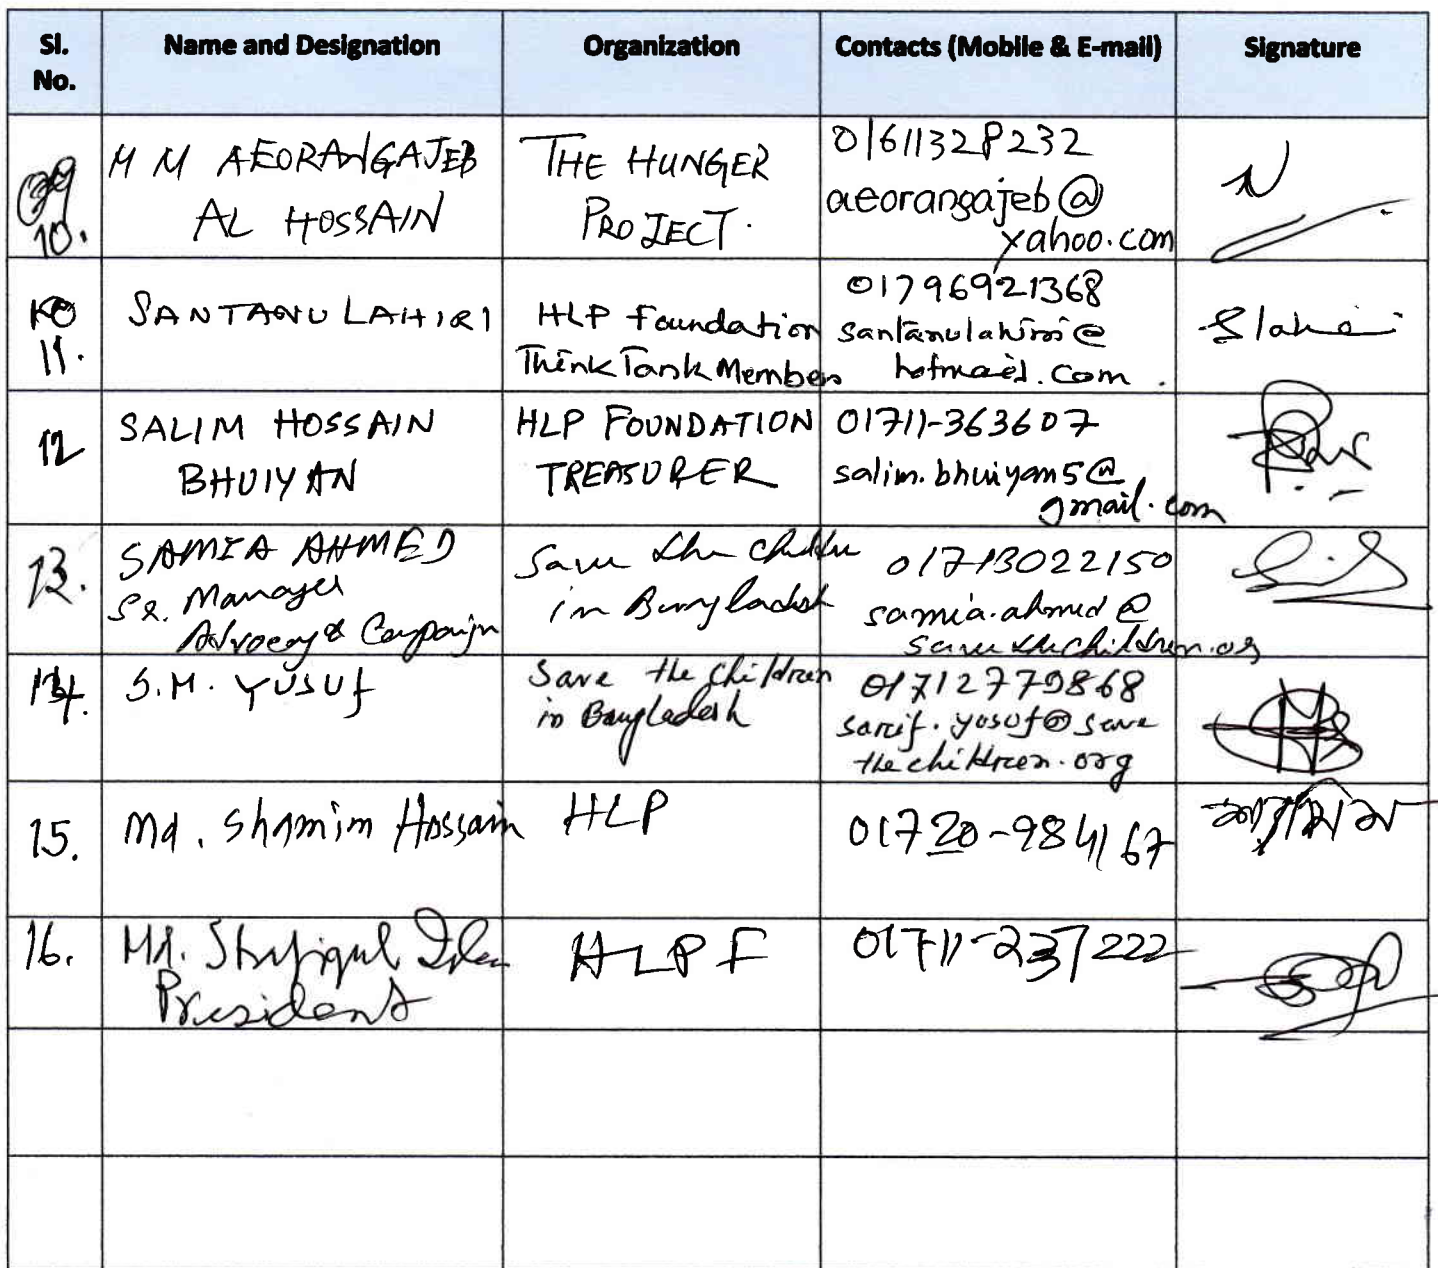 Sl. No.
Name and Designation
Organization
Contacts (Mobile & E-mail)
Signature
10.
M M AEORANGAJEB
AL HOSSAIN
THE HUNGER
PROJECT.
01611328232
aeorangajeb@
yahoo.com
11.
SANTANU LAHIRI
HLP Foundation
Think Tank Members
01796921368
santanulahiri@
hotmail.com.
12
SALIM HOSSAIN
BHUIYAN
HLP FOUNDATION
TREASURER
01711-363607
salim.bhuiyan5@
gmail.com
13.
SAMIA AHMED
Sr. Manager
Advocacy & Campaign
Save the Children
in Bangladesh
01713022150
samia.ahmed@
savethechildren.org
14.
S.M. YUSUf
Save the children
in Bangladesh
01712779868
sarif.yosuf@save
thechildren.org
15.
Md. Shamim Hossain
HLP
01720-984167
16.
Md. Shafiqul Islam
President
HLPF
01711-237222